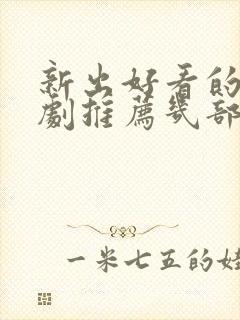 新出好看的
劇推薦几部
一米七五的娃